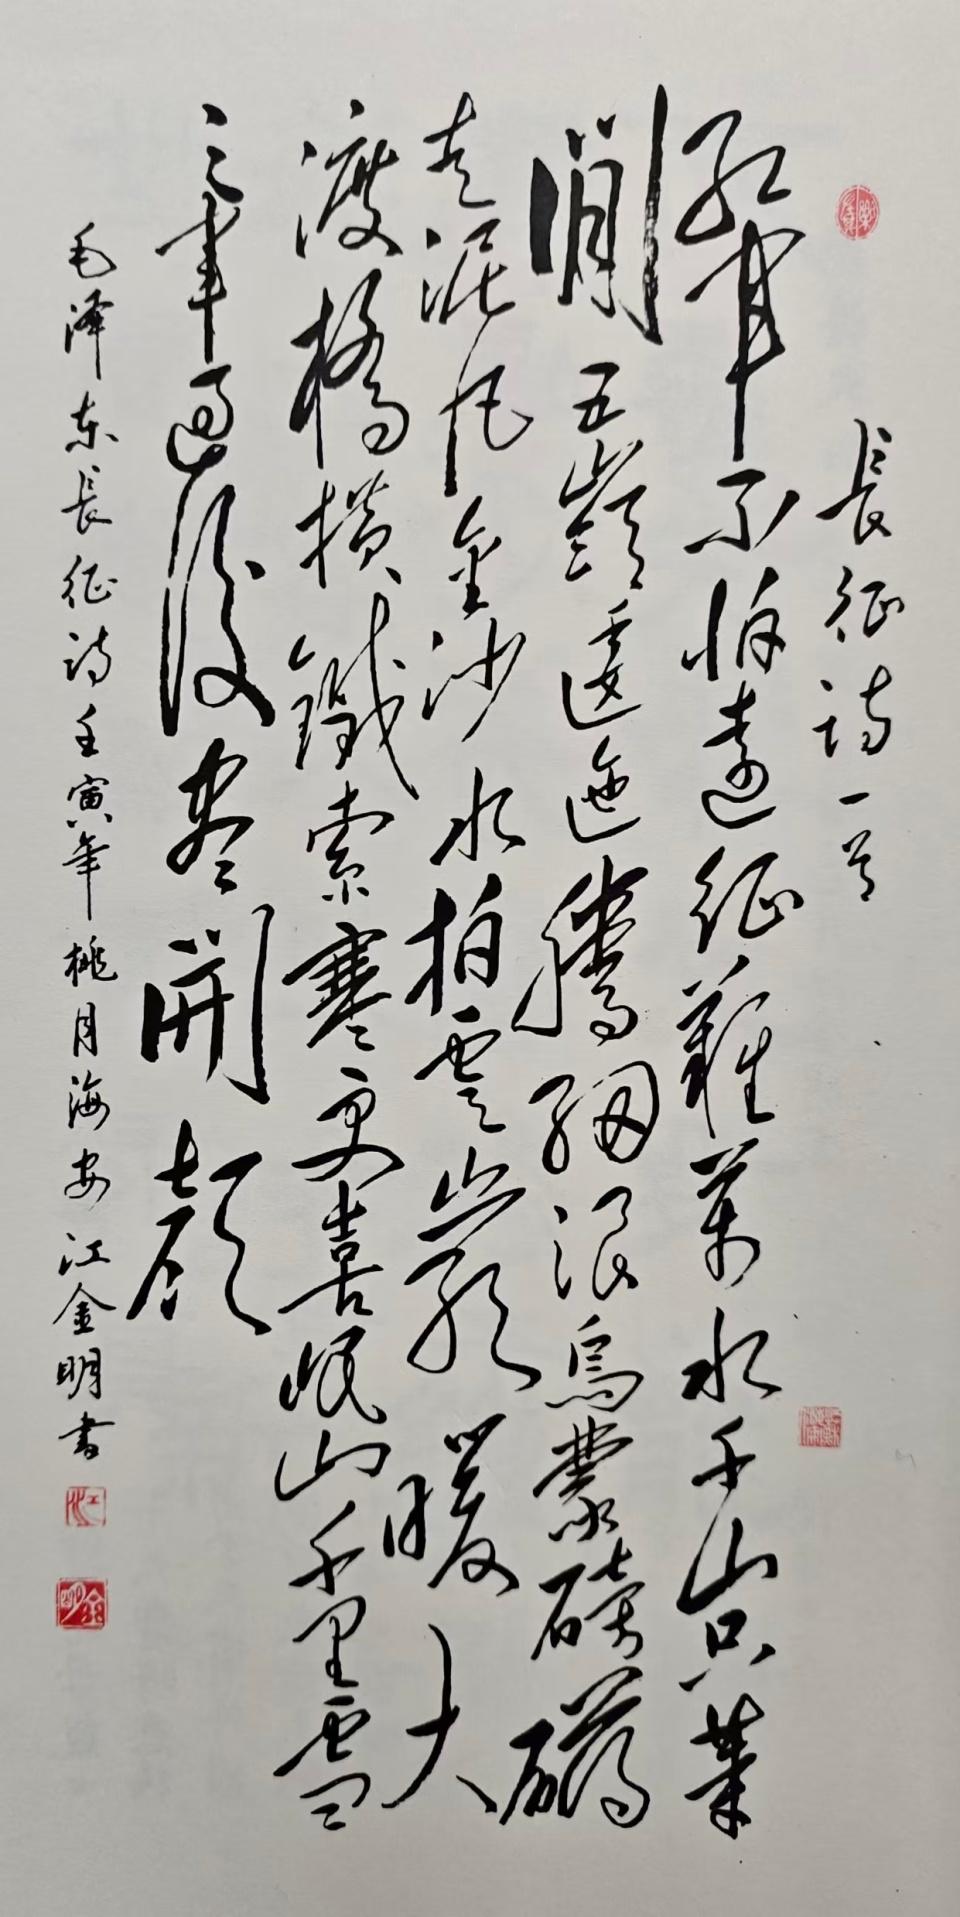 長征诗一首
红軍不怕遠征難萬水千山只等
閒五嶺逶迤騰細浪烏蒙磅礴
走泥丸金沙水拍雲崖暖大
渡橋横鐵索寒更喜岷山千里雪
三軍過後盡開顏
毛泽东長征诗壬寅年桃月海安江金明書
金明